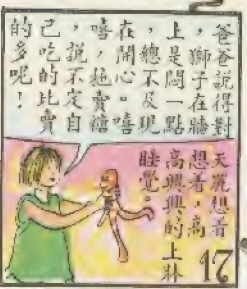 爸爸說得對
，獅子在牆
上是悶一點
，總不及現
在開心。嘻
嘻，牠賣糖
，說不定自
己吃的比賣
的多呢！
天麗想着
想着，高
高興興的上牀
睡覺。
17